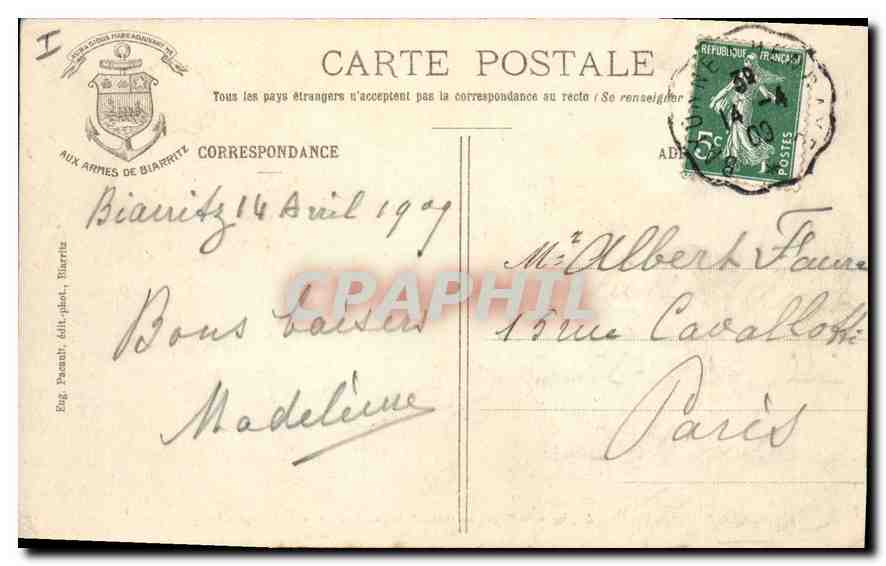 I
AURA SIDUS MARE ADJUVANT ME
AUX ARMES DE BIARRITZ
CARTE POSTALE
Tous les pays étrangers n'acceptent pas la correspondance au recto (Se renseigner
CORRESPONDANCE
AD
RÉPUBLIQUE FRANÇAISE
5c
POSTES
14 -4
09
Biarritz 14 Avril 1909
Bons baisers
Madeleine
Mr Albert Faure
15 rue Cavallotti
Paris
Eug. Pacault, édit.-phot., Biarritz
CPAPHIL